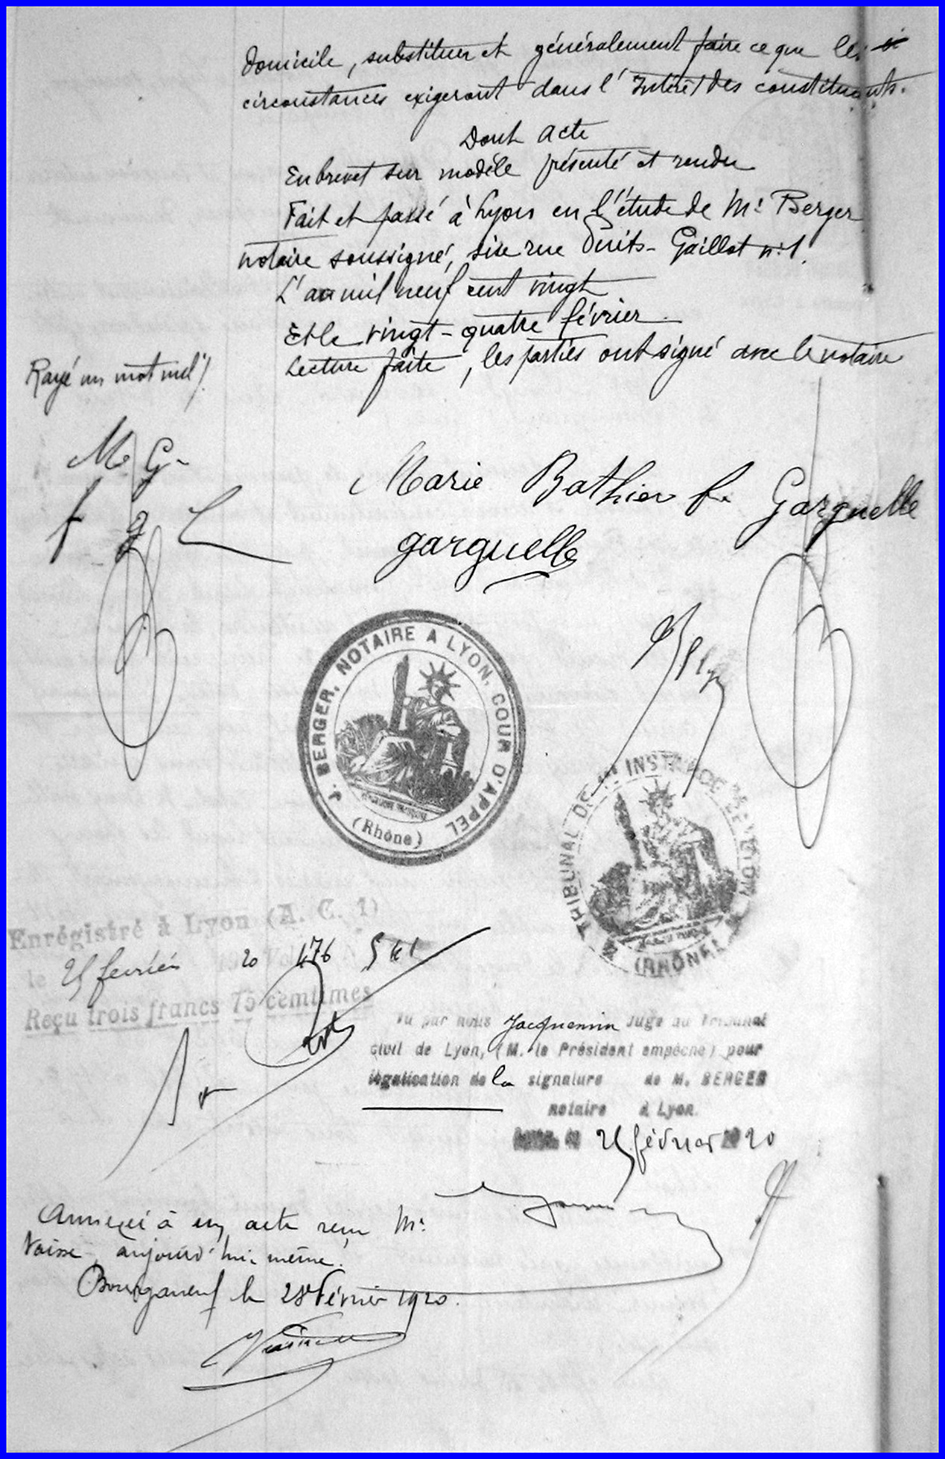 domicile, substituer et généralement faire ce que les
circonstances exigeront dans l'Intérêt des constituants.
Dont acte
En brevet sur modèle présenté et rendu
Fait et passé à Lyon en l'étude de Me Berger
notaire soussigné, sise rue Puits-Gaillot n° 1.
L'an mil neuf cent vingt
Et le vingt-quatre février.
Lecture faite, les parties ont signé avec le notaire
Rayé un mot nul /.
M G
f g
Marie Bathier f. Garguelle
garguelle
J. BERGER, NOTAIRE A LYON, COUR D'APPEL
(Rhône)
TRIBUNAL DE 1re INSTANCE DE LYON
(RHÔNE)
Enregistré à Lyon (A. C. 1)
le 25 février 20 476
Reçu trois francs 75 centimes
Vu par nous Jacquemin Juge au Tribunal
civil de Lyon, (M. le Président empêché) pour
légalisation de la signature de M. BERGER
notaire à Lyon.
25 février 1920
Annexé à un acte reçu Me
aujourd'hui même.
Bourganeuf le 28 Février 1920.